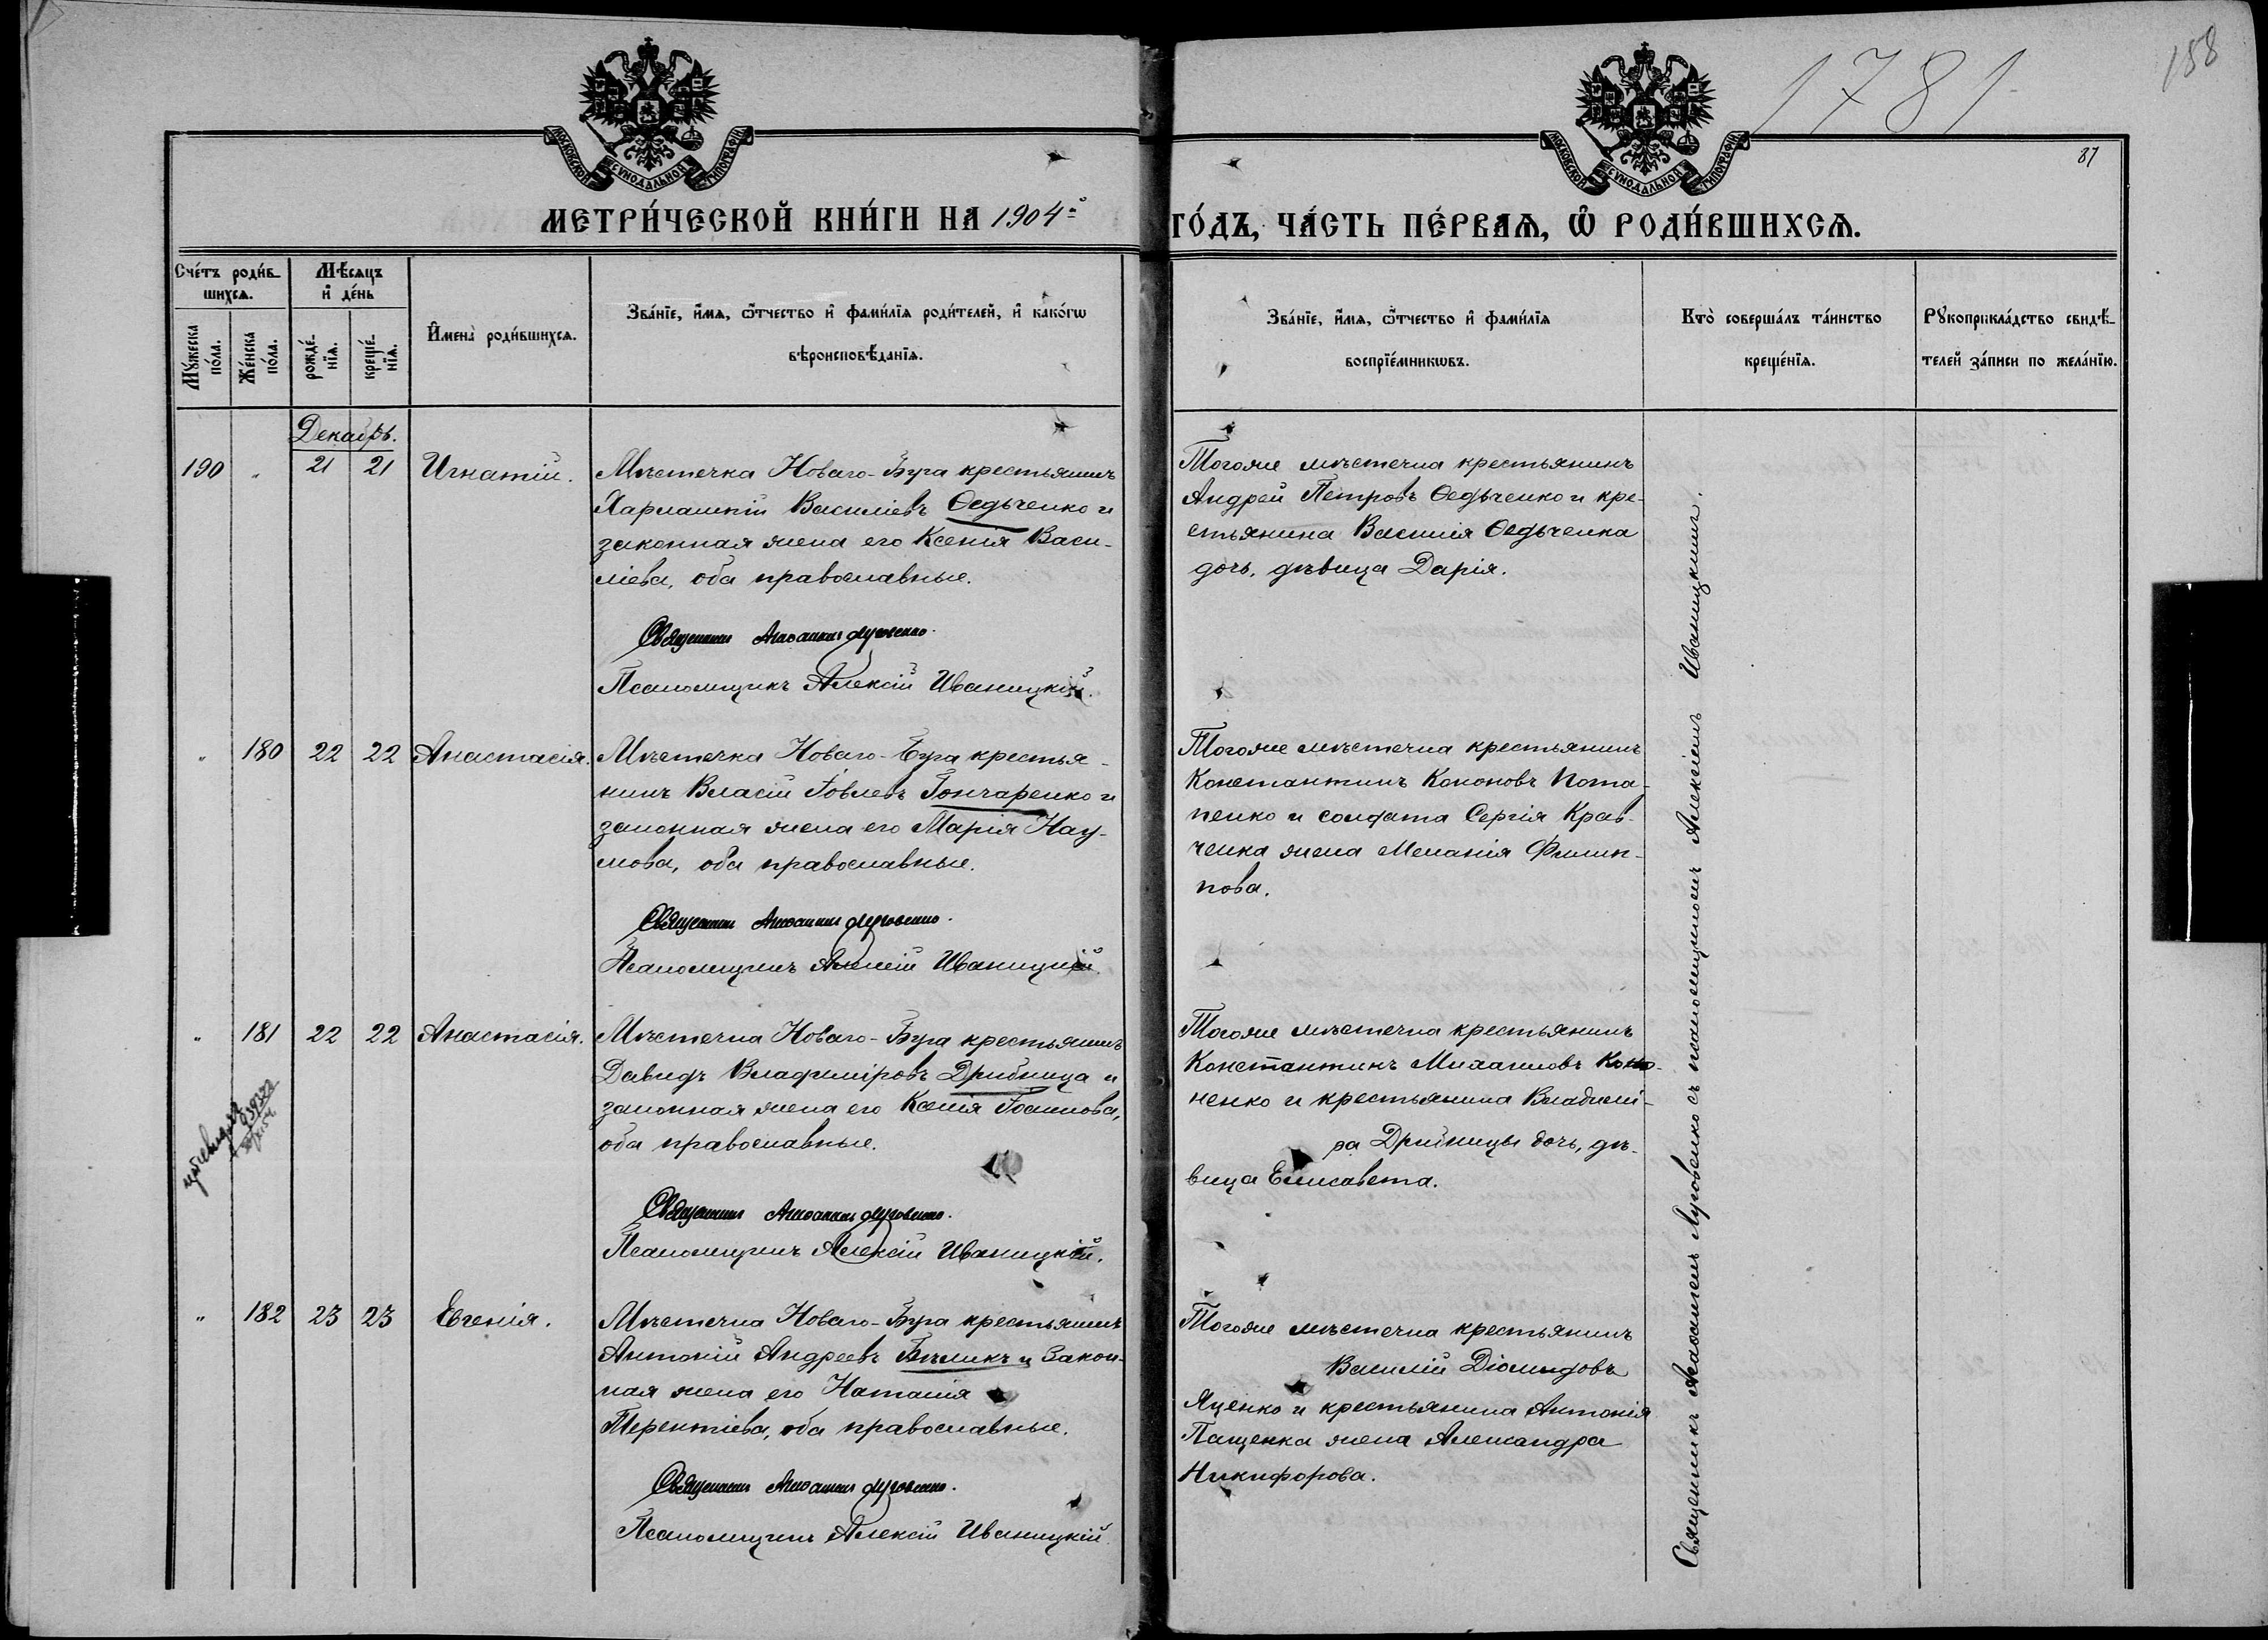 1781
158
МОСКОВСКОЙ СѴНОДАЛЬНОЙ ТИПОГРАФІИ
МОСКОВСКОЙ СѴНОДАЛЬНОЙ ТИПОГРАФІИ
87
МЕТРИ́ЧЕСКОЙ КНИ́ГИ НА 1904й
ГО́ДЪ, ЧА́СТЬ ПЕ́РВАѦ, Ѡ҆ РОДИ́ВШИХСѦ.
Сче́тъ роди́в-
шихсѧ.
Мѣ́сѧцъ
и҆ де́нь
Мꙋ́жеска
по́ла.
Же́нска
по́ла.
рожде́-
нїѧ.
креще́-
нїѧ.
И҆мена̀ роди́вшихсѧ.
Зва́нїе, и҆́мѧ, ѻ҆́тчество и҆ фами́лїѧ роди́телей, и҆ како́гѡ
вѣроисповѣ́данїѧ.
Зва́нїе, и҆́мѧ, ѻ҆́тчество и҆ фами́лїѧ
воспрїе́мникѡвъ.
Кто̀ соверша́лъ та́инство
креще́нїѧ.
Рꙋкоприкла́дство свидѣ́-
телей за́писи по жела́нїю.
Декабрь.
190 " 21 21 Игнатій.
Мѣстечка Новаго-Буга крестьянинъ
Харлампій Василіевъ Ѳедьченко и
законная жена его Ксенія Васи-
ліева, оба православные.
Священникъ Аѳанасій Луговенко.
Псаломщикъ Алексій Иваницкій.
Тогоже мѣстечка крестьянинъ
Андрей Петровъ Ѳедьченко и кре-
стьянина Василія Ѳедьченка
дочь, дѣвица Дарія.
" 180 22 22 Анастасія.
Мѣстечка Новаго-Буга крестья-
нинъ Власій Іовлевъ Гончаренко и
законная жена его Марія Нау-
мова, оба православные.
Священникъ Аѳанасій Луговенко.
Псаломщикъ Алексій Иваницкій.
Тогоже мѣстечка крестьянинъ
Константинъ Кононовъ Пота-
пенко и солдата Сергія Крав-
ченка жена Меланія Филип-
пова.
" 181 22 22 Анастасія.
Мѣстечка Новаго-Буга крестьянинъ
Давидъ Владиміровъ Дрибница и
законная жена его Ксенія Іоакимова,
оба православные.
Священникъ Аѳанасій Луговенко.
Псаломщикъ Алексій Иваницкій.
Тогоже мѣстечка крестьянинъ
Константинъ Михаиловъ Коно-
ненко и крестьянина Владимі-
ра Дрибницы дочь, дѣ-
вица Елисавета.
" 182 23 23 Евгенія.
Мѣстечка Новаго-Буга крестьянинъ
Антоній Андреевъ Бѣликъ и закон-
ная жена его Наталія
Терентіева, оба православные.
Священникъ Аѳанасій Луговенко.
Псаломщикъ Алексій Иваницкій.
Тогоже мѣстечка крестьянинъ
Василій Діомидовъ
Яценко и крестьянина Антонія
Пащенка жена Александра
Никифорова.
Священникъ Аѳанасіемъ Луговенко съ псаломщикомъ Алексіемъ Иваницкимъ.